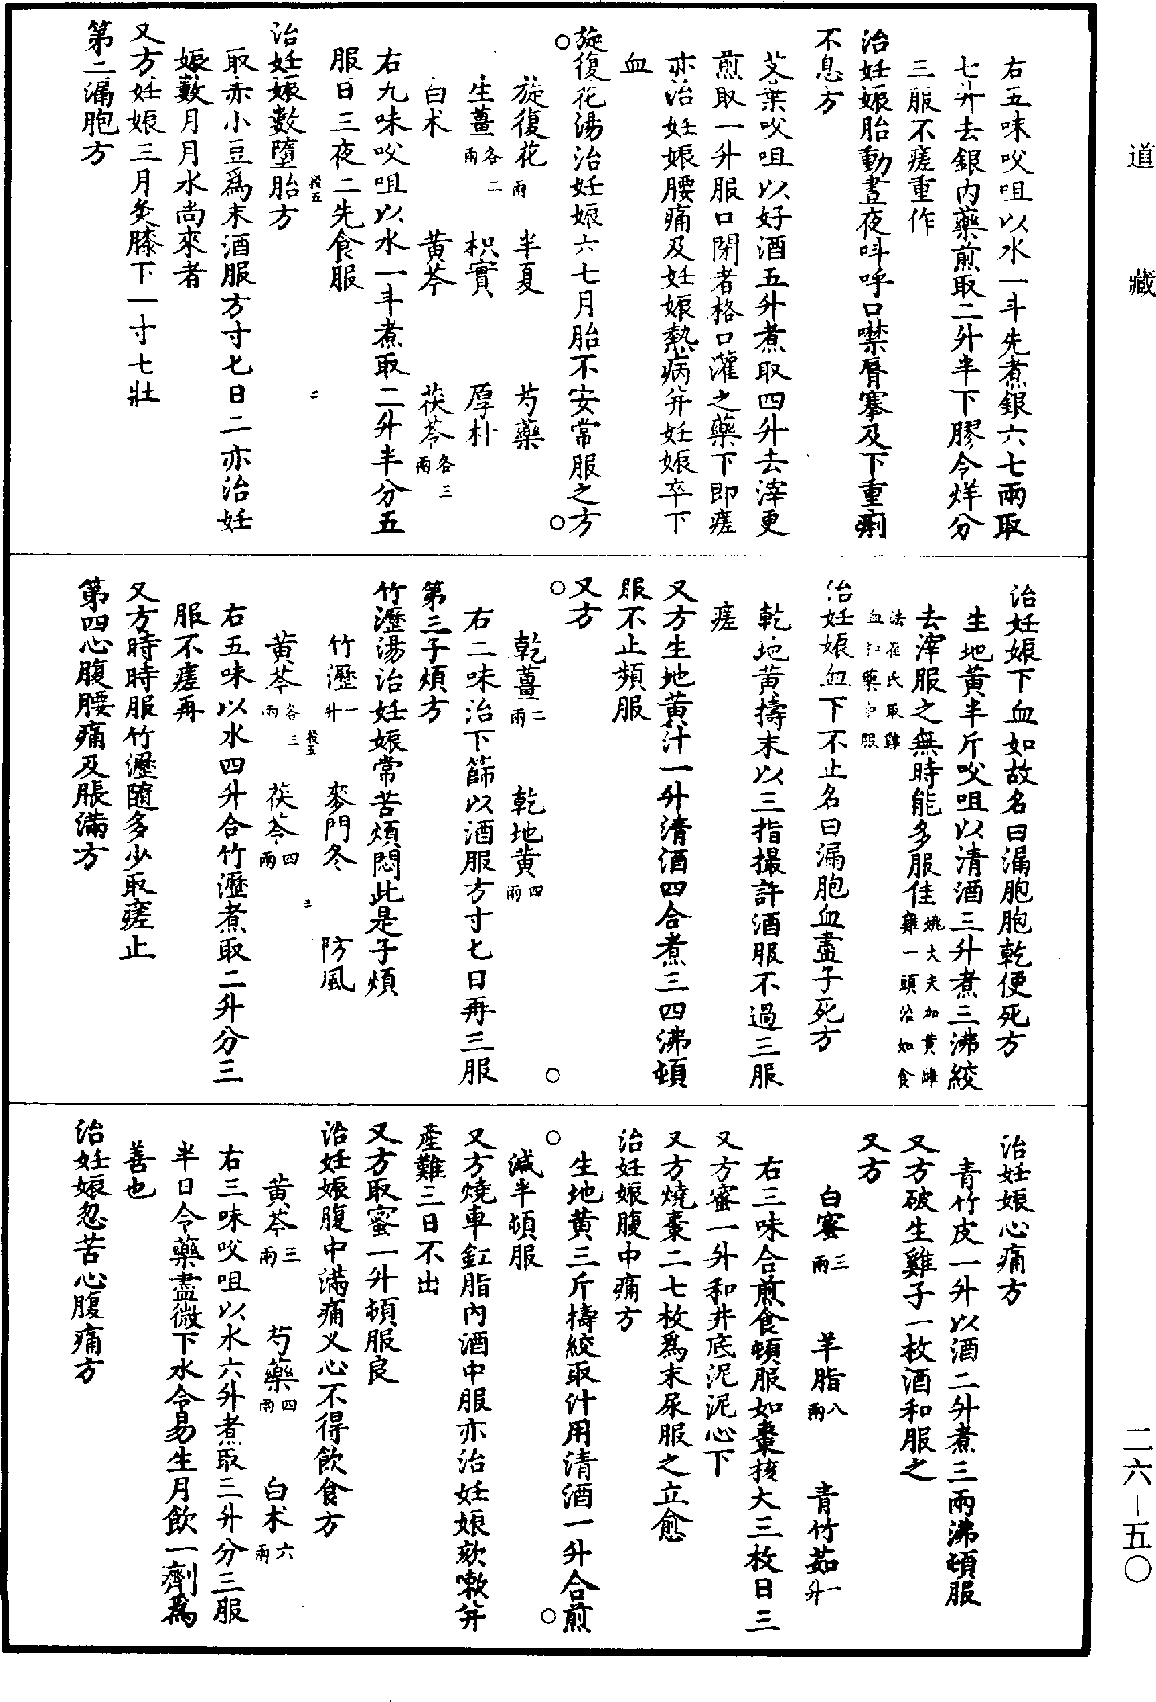 道藏
右五味㕮咀以水一斗先煮銀六七兩取
七升去銀內藥煎取二升半下膠令烊分
三服不瘥重作
治妊娠胎動晝夜叫呼口噤脣搴及下重痢
不息方
艾葉㕮咀以好酒五升煮取四升去滓更
煎取一升服口閉者格口灌之藥下即瘥
亦治妊娠腰痛及妊娠熱病并妊娠卒下
血
旋復花湯治妊娠六七月胎不安常服之方
旋復花一兩 半夏 芍藥
生薑各二兩 枳實 厚朴
白朮 黃芩 茯苓各三兩
右九味㕮咀以水一斗煮取二升半分五
服日三夜二先食服
治妊娠數墮胎方
取赤小豆爲末酒服方寸匕日二亦治妊
娠數月月水尚來者
又方妊娠三月灸膝下一寸七壯
第二漏胞方
治妊娠下血如故名曰漏胞胞乾便死方
生地黃半斤㕮咀以清酒三升煮三沸絞
去滓服之無時能多服佳姚大夫加黃雌雞一頭治如食
法崔氏取雞血和藥中服
治妊娠血下不止名曰漏胞血盡子死方
乾地黃擣末以三指撮許酒服不過三服
瘥
又方生地黃汁一升清酒四合煮三四沸頓
服不止頻服
又方
乾薑二兩 乾地黃四兩
右二味治下篩以酒服方寸匕日再三服
第三子煩方
竹瀝湯治妊娠常苦煩悶此是子煩
竹瀝一升 麥門冬 防風
黃芩各三兩 茯苓四兩
右五味以水四升合竹瀝煮取二升分三
服不瘥再
又方時時服竹瀝隨多少取瘥止
第四心腹腰痛及脹滿方
治妊娠心痛方
青竹皮一升以酒二升煮三兩沸頓服
又方破生雞子一枚酒和服之
又方
白蜜三兩 羊脂八兩 青竹茹一升
右三味合煎食頓服如棗核大三枚日三
又方蜜一升和井底泥泥心下
又方燒棗二七枚爲末尿服之立愈
治妊娠腹中痛方
生地黃三斤擣絞取汁用清酒一升合煎
減半頓服
又方燒車釭脂內酒中服亦治妊娠欬嗽并
產難三日不出
又方取蜜一升頓服良
治妊娠腹中滿痛叉心不得飲食方
黃芩三兩 芍藥四兩 白朮六兩
右三味㕮咀以水六升煮取三升分三服
半日令藥盡微下水令易生月飲一劑爲
善也
治妊娠忽苦心腹痛方
二六-五〇